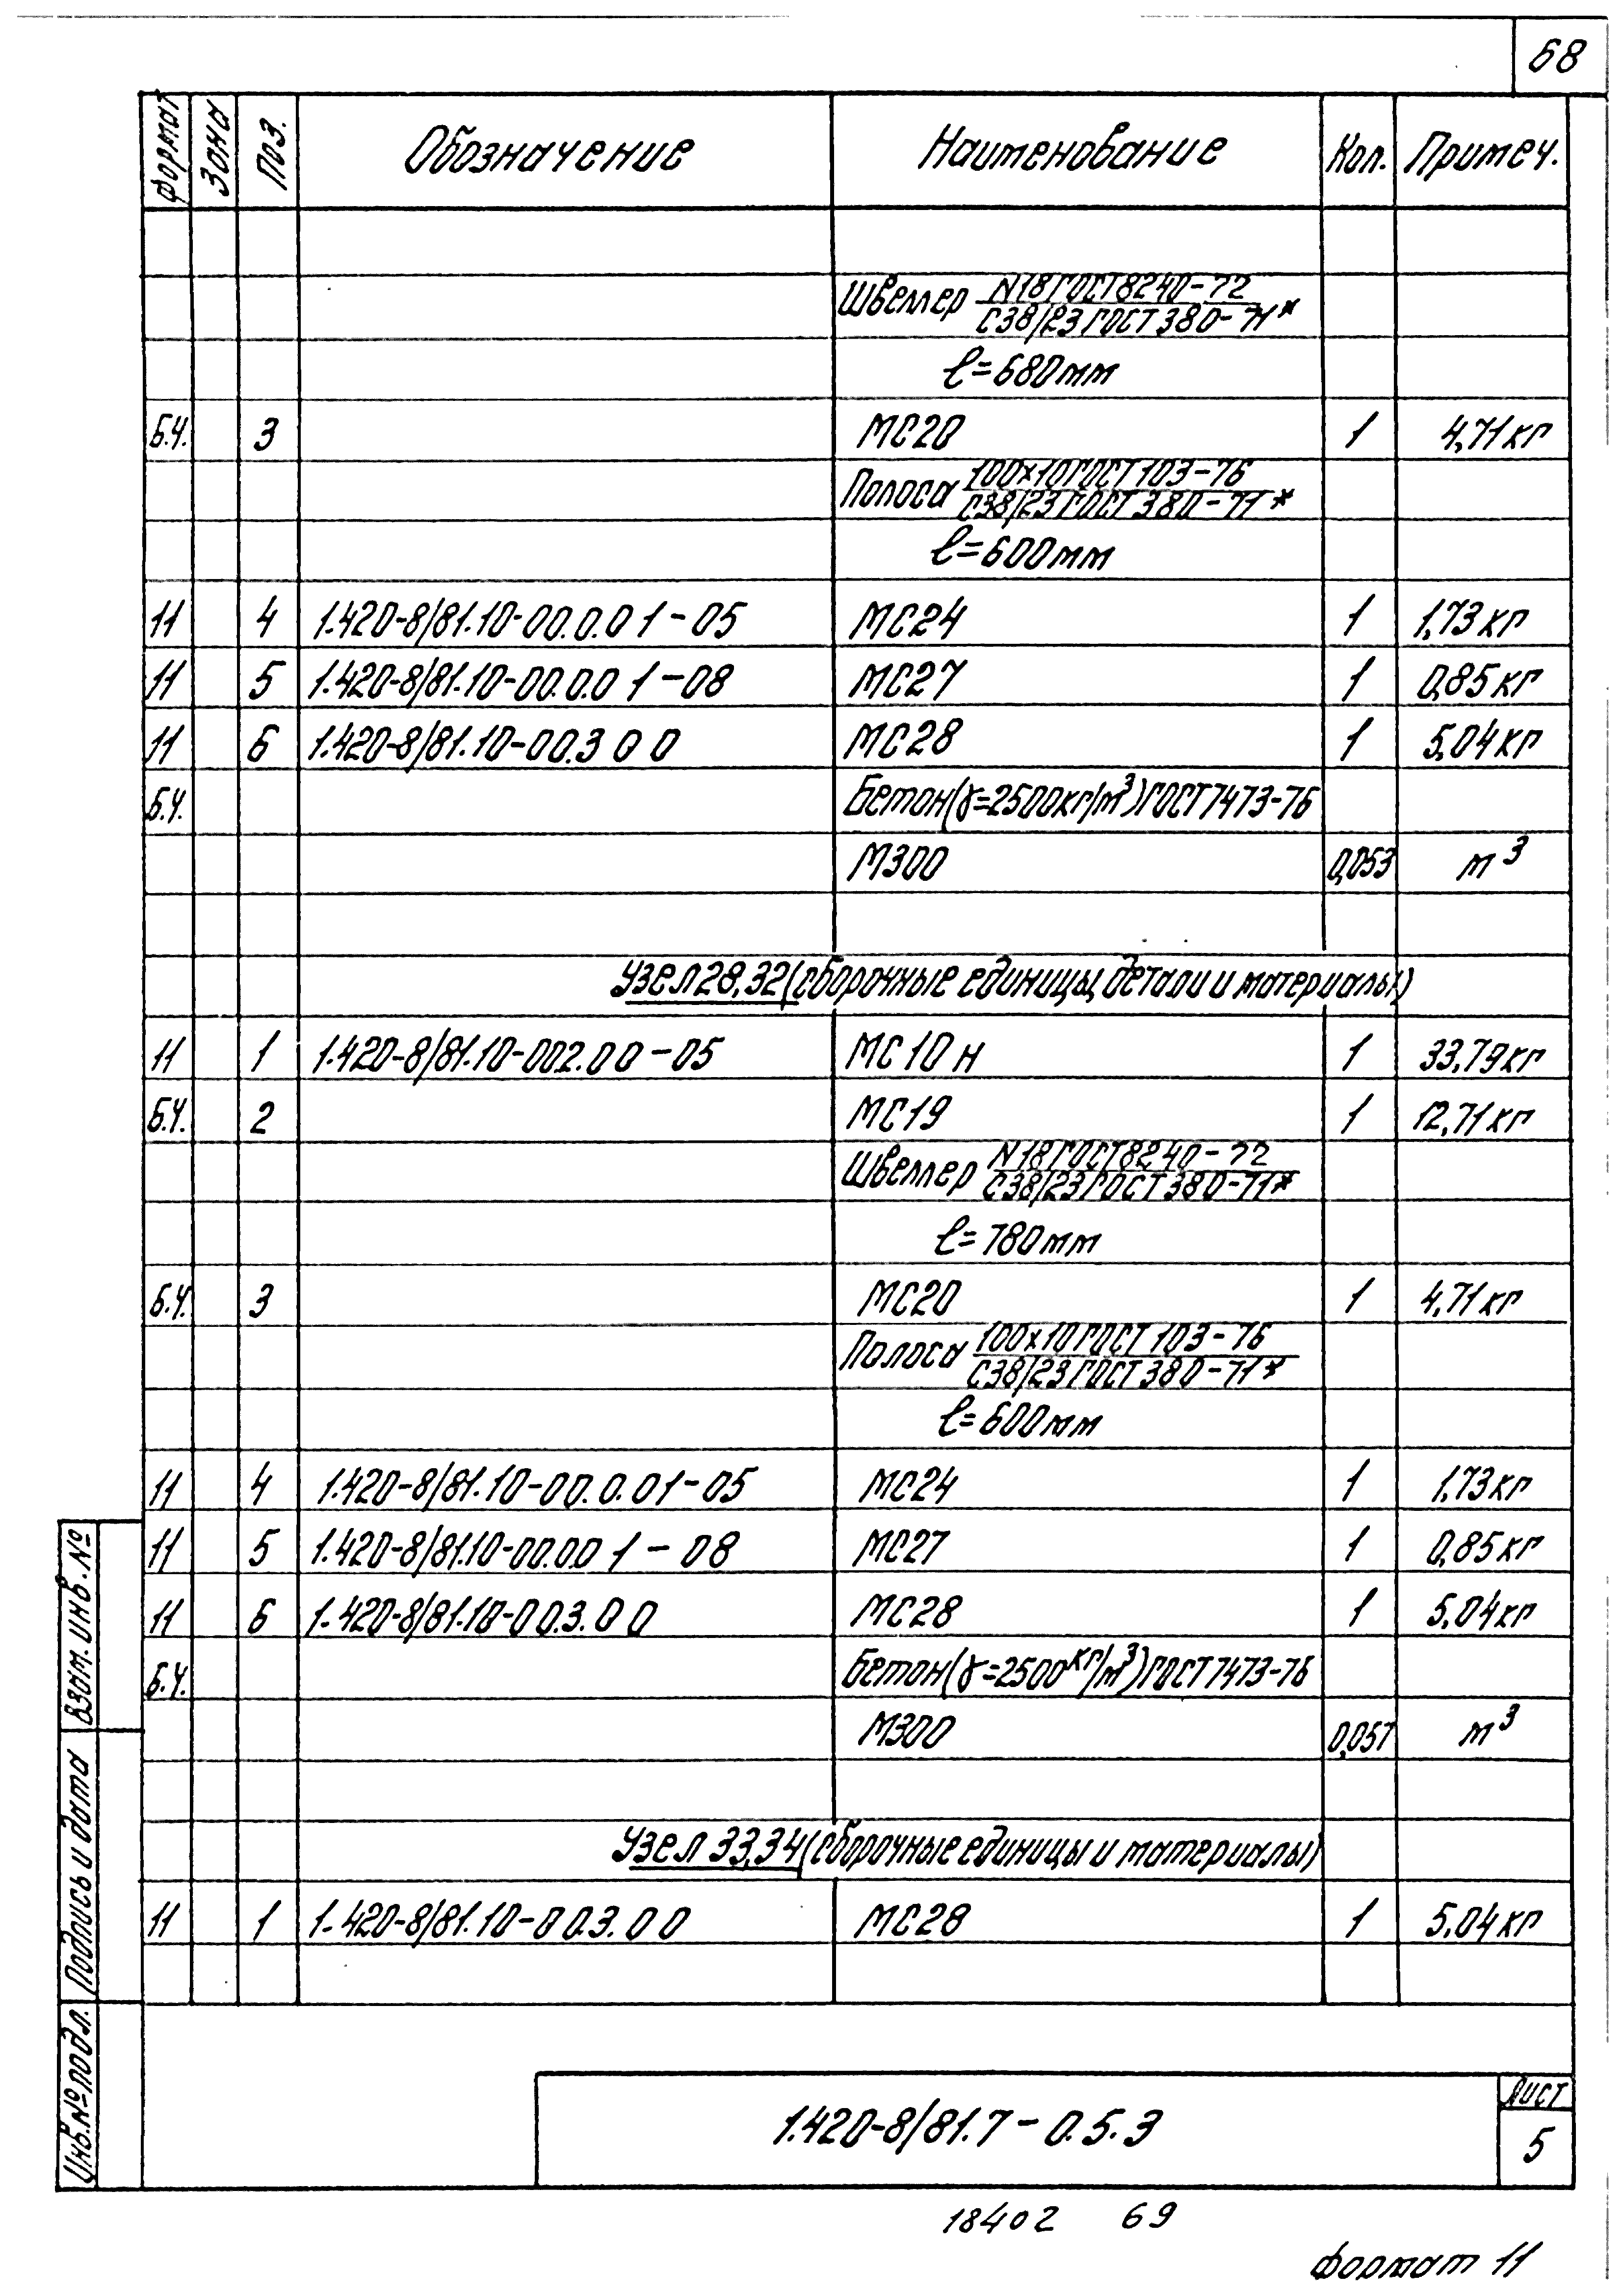 68
Формат Зона Поз. Обозначение Наименование Кол. Примеч.
Швеллер N18 ГОСТ 8240-72
С38/23 ГОСТ 380-71*
ℓ=680мм
Б.Ч. 3 МС20 1 4,71кг
Полоса 100×10 ГОСТ 103-76
С38/23 ГОСТ 380-71*
ℓ=600мм
11 4 1.420-8/81.10-00.0.01-05 МС24 1 1,73кг
11 5 1.420-8/81.10-00.0.01-08 МС27 1 0,85кг
11 6 1.420-8/81.10-00.3 0 0 МС28 1 5,04кг
Б.Ч. Бетон(γ=2500кг/м³)ГОСТ7473-76
М300 0,053 м³
Узел 28,32(сборочные единицы, детали и материалы)
11 1 1.420-8/81.10-002.00-05 МС10н 1 33,79кг
Б.Ч. 2 МС19 1 12,71кг
Швеллер N18 ГОСТ 8240-72
С38/23 ГОСТ 380-71*
ℓ=780мм
Б.Ч. 3 МС20 1 4,71кг
Полоса 100×10 ГОСТ 103-76
С38/23 ГОСТ 380-71*
ℓ=600мм
11 4 1.420-8/81.10-00.0.01-05 МС24 1 1,73кг
11 5 1.420-8/81.10-00.0.0 1-08 МС27 1 0,85кг
11 6 1.420-8/81.10-00.3.00 МС28 1 5,04кг
Б.Ч. Бетон(γ=2500кг/м³)ГОСТ7473-76
М300 0,057 м³
Узел 33,34(сборочные единицы и материалы)
11 1 1.420-8/81.10-00.3.00 МС28 1 5,04кг
Взам. инв. №
Подпись и дата
Инв.№ подл.
1.420-8/81.7-0.5.3
Лист
5
18402 69
Формат 11